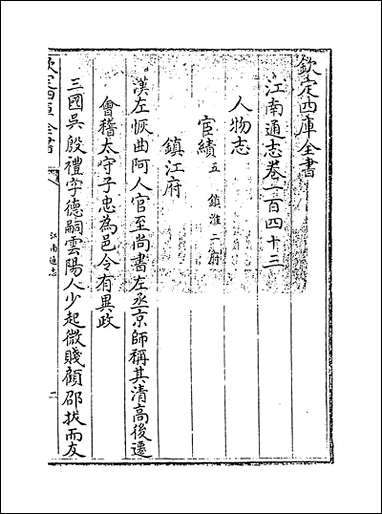 欽定四庫全書
江南通志卷一百四十三
人物志
宦績五 鎮淮二府
鎮江府
漢左恢曲阿人官至尚書左丞京師稱其清高後遷
會稽太守子忠為邑令有異政
三國吳殷禮字德嗣雲陽人少起微賤顧邵拔而友
欽定四庫全書
江南通志